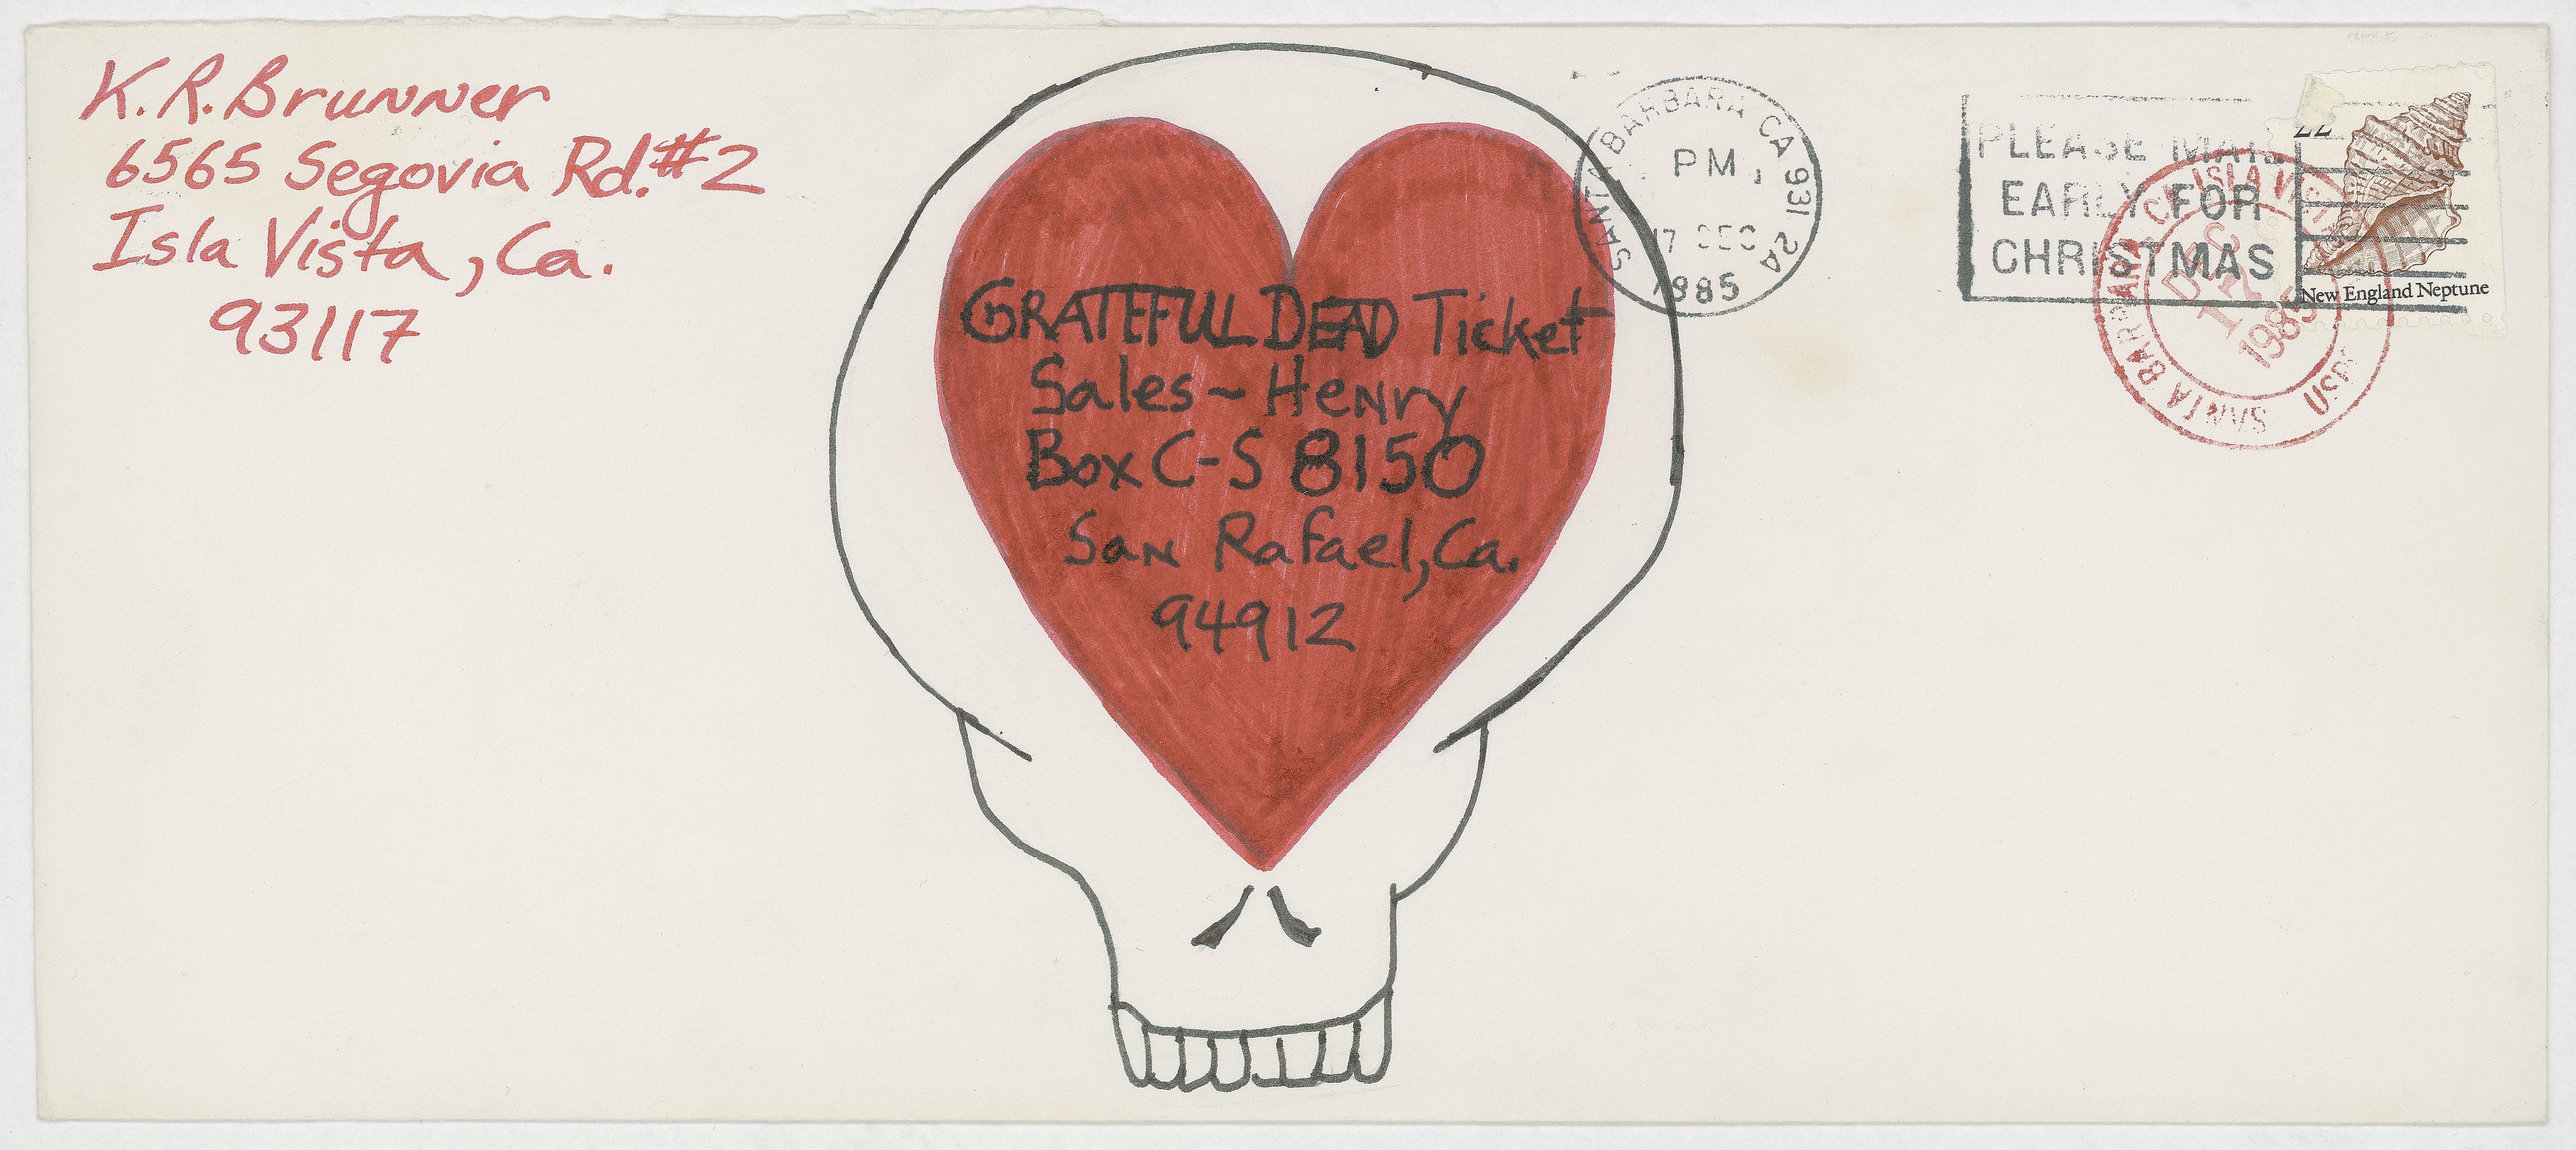 K.R. Brunner
6565 Segovia Rd. #2
Isla Vista, Ca.
93117
GRATEFUL DEAD Ticket
Sales ~ Henry
Box C-S 8150
San Rafael, Ca.
94912
SANTA BARBARA CA 931
PM
17 DEC
1985
PLEASE MAIL
EARLY FOR
CHRISTMAS
22
New England Neptune
SANTA BARBARA CA ISLA VISTA
DEC
1985
USPS